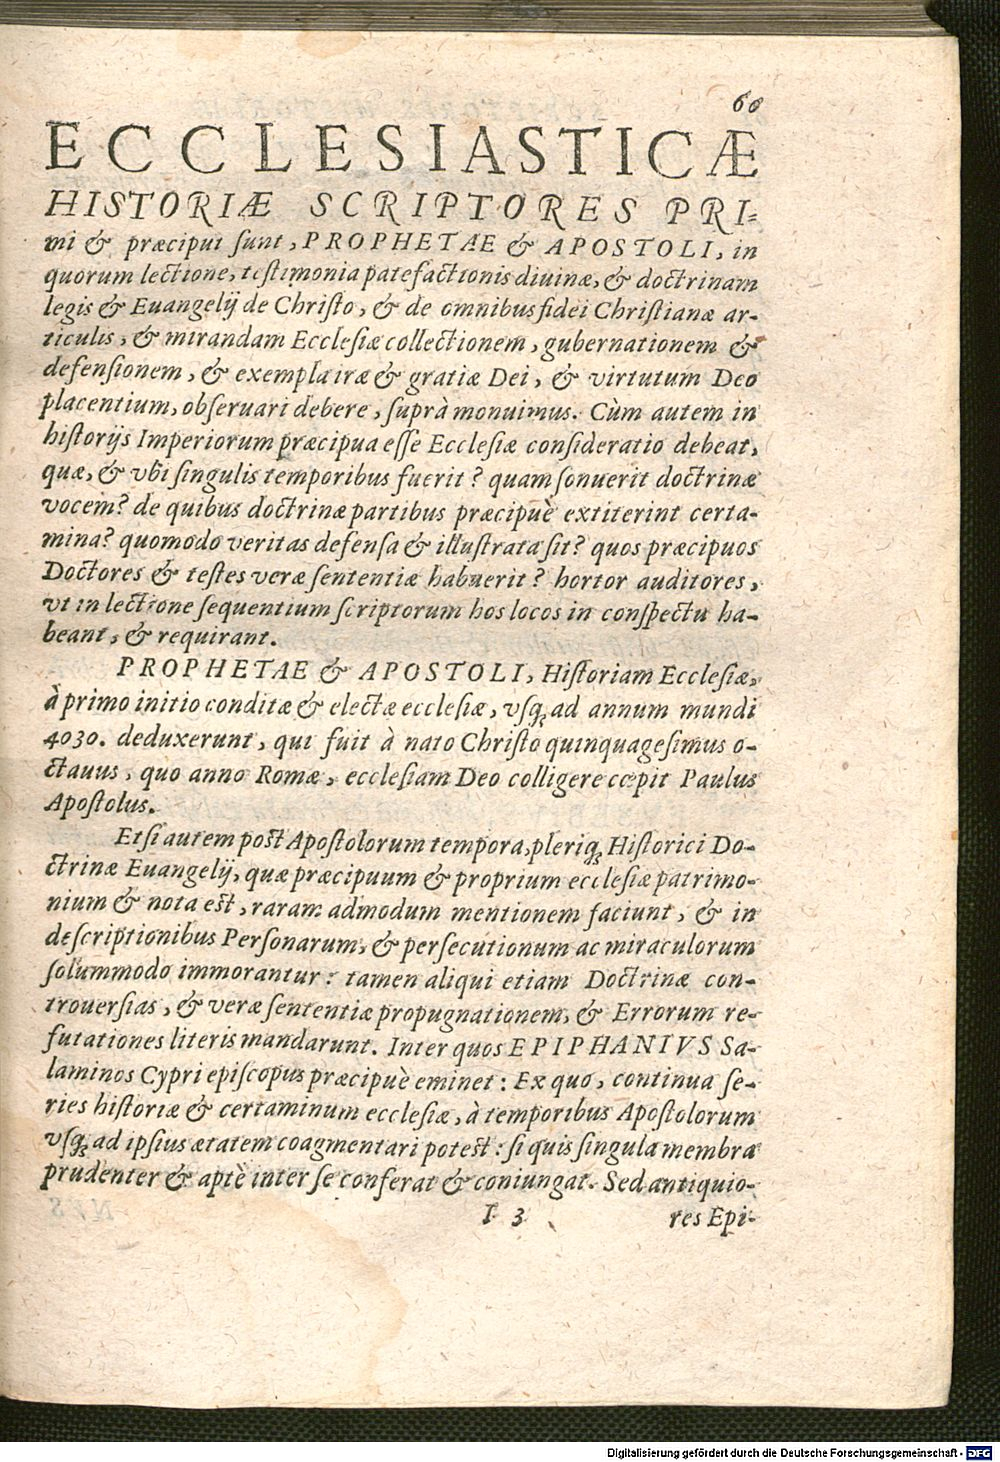 60
ECCLESIASTICÆ
HISTORIÆ SCRIPTORES PRI-
mi & præcipui ſunt, PROPHETAE & APOSTOLI, in
quorum lectione, teſtimonia patefactionis diuinæ, & doctrinam
legis & Euangelij de Chriſto, & de omnibus fidei Chriſtianæ ar-
ticulis, & mirandam Eccleſiæ collectionem, gubernationem &
defenſionem, & exempla iræ & gratiæ Dei, & virtutum Deo
placentium, obſeruari debere, ſuprà monuimus. Cùm autem in
hiſtorijs Imperiorum præcipua eſſe Eccleſiæ conſideratio debeat,
quæ, & vbi ſingulis temporibus fuerit? quam ſonuerit doctrinæ
vocem? de quibus doctrinæ partibus præcipuè extiterint certa-
mina? quomodo veritas defenſa & illuſtrata ſit? quos præcipuos
Doctores & teſtes veræ ſententiæ habuerit? hortor auditores,
vt in lectione ſequentium ſcriptorum hos locos in conſpectu ha-
beant, & requirant.
PROPHETAE & APOSTOLI, Hiſtoriam Eccleſiæ,
à primo initio conditæ & electæ eccleſiæ, vſq; ad annum mundi
4030. deduxerunt, qui fuit à nato Chriſto quinquageſimus o-
ctauus, quo anno Romæ, eccleſiam Deo colligere cœpit Paulus
Apoſtolus.
Etſi autem poſt Apoſtolorum tempora, pleriq; Hiſtorici Do-
ctrinæ Euangelij, quæ præcipuum & proprium eccleſiæ patrimo-
nium & nota eſt, raram admodum mentionem faciunt, & in
deſcriptionibus Perſonarum, & perſecutionum ac miraculorum
ſolummodo immorantur: tamen aliqui etiam Doctrinæ con-
trouerſias, & veræ ſententiæ propugnationem, & Errorum re-
futationes literis mandarunt. Inter quos EPIPHANIVS Sa-
laminos Cypri epiſcopus præcipuè eminet: Ex quo, continua ſe-
ries hiſtoriæ & certaminum eccleſiæ, à temporibus Apoſtolorum
vſq; ad ipſius ætatem coagmentari poteſt: ſi quis ſingula membra
prudenter & aptè inter ſe conferat & coniungat. Sed antiquio-
I 3 res Epi-
Digitalisierung gefördert durch die Deutsche Forschungsgemeinschaft - DFG